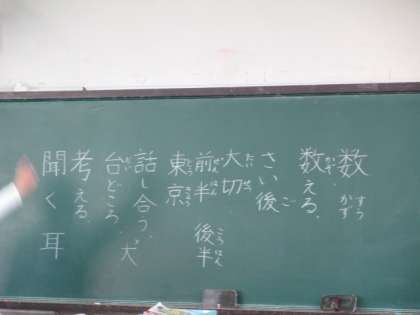 数 すう かず
数える、 かぞ
さい後 ご
大切 たいせつ
前半 ぜんはん 後半 こうはん
東京 とうきょう
話し合う、
台どころ、 だい 犬
考える、
聞く 耳